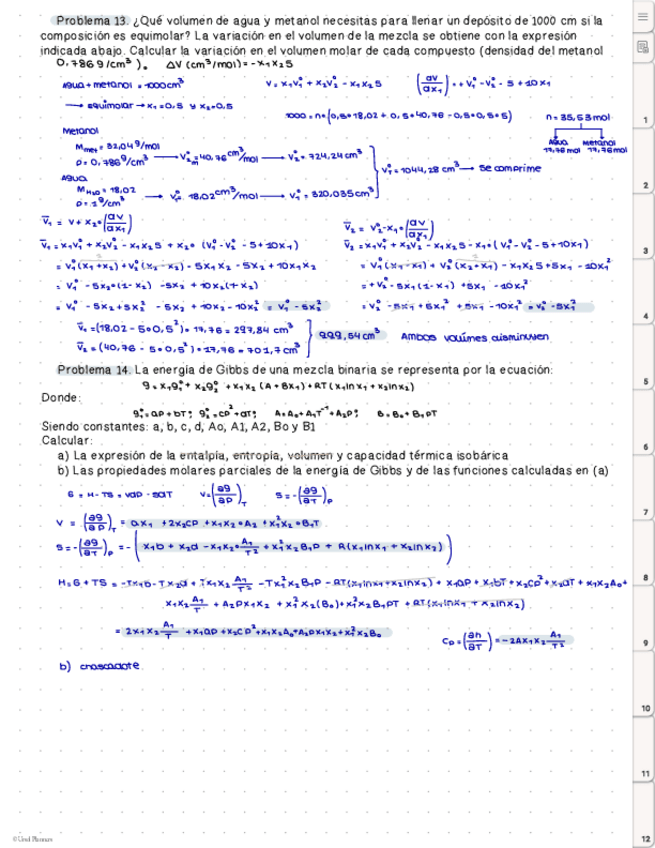 Problema 13. ¿Qué volumen de agua y metanol necesitas para llenar un depósito de 1000 cm si la
composición es equimolar? La variación en el volumen de la mezcla se obtiene con la expresión
indicada abajo. Calcular la variación en el volumen molar de cada compuesto (densidad del metanol
0,786 g/cm³). ΔV (cm³/mol) = -x₁x₂5
Agua + metanol = 1000cm³
V = x₁V₁° + x₂V₂° - x₁x₂5
(∂V/∂x₁) = + V₁° - V₂° - 5 + 10x₁
→ equimolar → x₁=0,5 y x₂=0,5
1000 = n·(0,5·18,02 + 0,5·40,76 - 0,5·0,5·5)
n = 35,53mol
Metanol
Agua Metanol
17,76mol 17,76mol
M met = 32,04g/mol
ρ = 0,786 g/cm³ → V₂°m = 40,76 cm³/mol → V₂° = 724,24cm³
Vᵀ° = 1044,28 cm³ → se comprime
Agua
M H₂O = 18,02
ρ = 1 g/cm³ → V₁° = 18,02cm³/mol → V₁° = 320,035cm³
V̄₁ = V + x₂·(∂V/∂x₁)
V̄₂ = V₂° - x₁·(∂V/∂x₁)
V̄₁ = x₁V₁° + x₂V₂° - x₁x₂5 + x₂·(V₁° - V₂° - 5 + 10x₁)
V̄₂ = x₁V₁° + x₂V₂° - x₁x₂5 - x₁·(V₁° - V₂° - 5 + 10x₁)
= V₁°(x₁ + x₂) + V₂°(x₂ - x₂) - 5x₁x₂ - 5x₂ + 10x₁x₂
= V₁°(x₁ - x₁) + V₂°(x₂ + x₁) - x₁x₂5 + 5x₁ - 10x₁²
= V₁° - 5x₂·(1-x₂) - 5x₂ + 10x₂(1+x₂)
= + V₂° - 5x₁(1-x₁) + 5x₁ - 10x₁²
= V₁° - 5x₂ + 5x₂² - 5x₂ + 10x₂ - 10x₂² = V₁° - 5x₂²
= V₂° - 5x₁ + 5x₁² + 5x₁ - 10x₁² = V₂° - 5x₁²
V̄₁ = (18,02 - 5·0,5²)·17,76 = 297,84 cm³
V̄₂ = (40,76 - 5·0,5²)·17,76 = 701,7cm³
999,54cm³ Ambos volúmes disminuyen
Problema 14. La energía de Gibbs de una mezcla binaria se representa por la ecuación:
g = x₁g₁° + x₂g₂° + x₁x₂ (A + Bx₁) + RT(x₁lnx₁ + x₂lnx₂)
Donde:
g₁° = aP + bT; g₂° = cP² + dT; A = A₀ + A₁T⁻¹ + A₂P; B = B₀ + B₁PT
Siendo constantes: a, b, c, d, Ao, A1, A2, Bo y B1
Calcular:
a) La expresión de la entalpía, entropía, volumen y capacidad térmica isobárica
b) Las propiedades molares parciales de la energía de Gibbs y de las funciones calculadas en (a)
G = H - TS = VdP - SdT V = (∂g/∂P)T S = -(∂g/∂T)P
V = (∂g/∂P)T = ax₁ + 2x₂cP + x₁x₂·A₂ + x₁²x₂·B₁T
S = -(∂g/∂T)P = -(x₁b + x₂d - x₁x₂·A₁/T² + x₁²x₂B₁P + R(x₁lnx₁ + x₂lnx₂))
H = G + TS = -Tx₁b - Tx₂d + Tx₁x₂ A₁/T² - Tx₁²x₂B₁P - RT(x₁lnx₁ + x₂lnx₂) + x₁aP + x₁bT + x₂cP² + x₂dT + x₁x₂A₀+
x₁x₂ A₁/T + A₂Px₁x₂ + x₁²x₂(B₀) + x₁²x₂B₁PT + RT(x₁lnx₁ + x₂lnx₂)
= 2x₁x₂ A₁/T + x₁aP + x₂cP² + x₁x₂A₀ + A₂Px₁x₂ + x₁²x₂B₀
Cp = (∂h/∂T) = -2Ax₁x₂ A₁/T²
b)
10
11
12